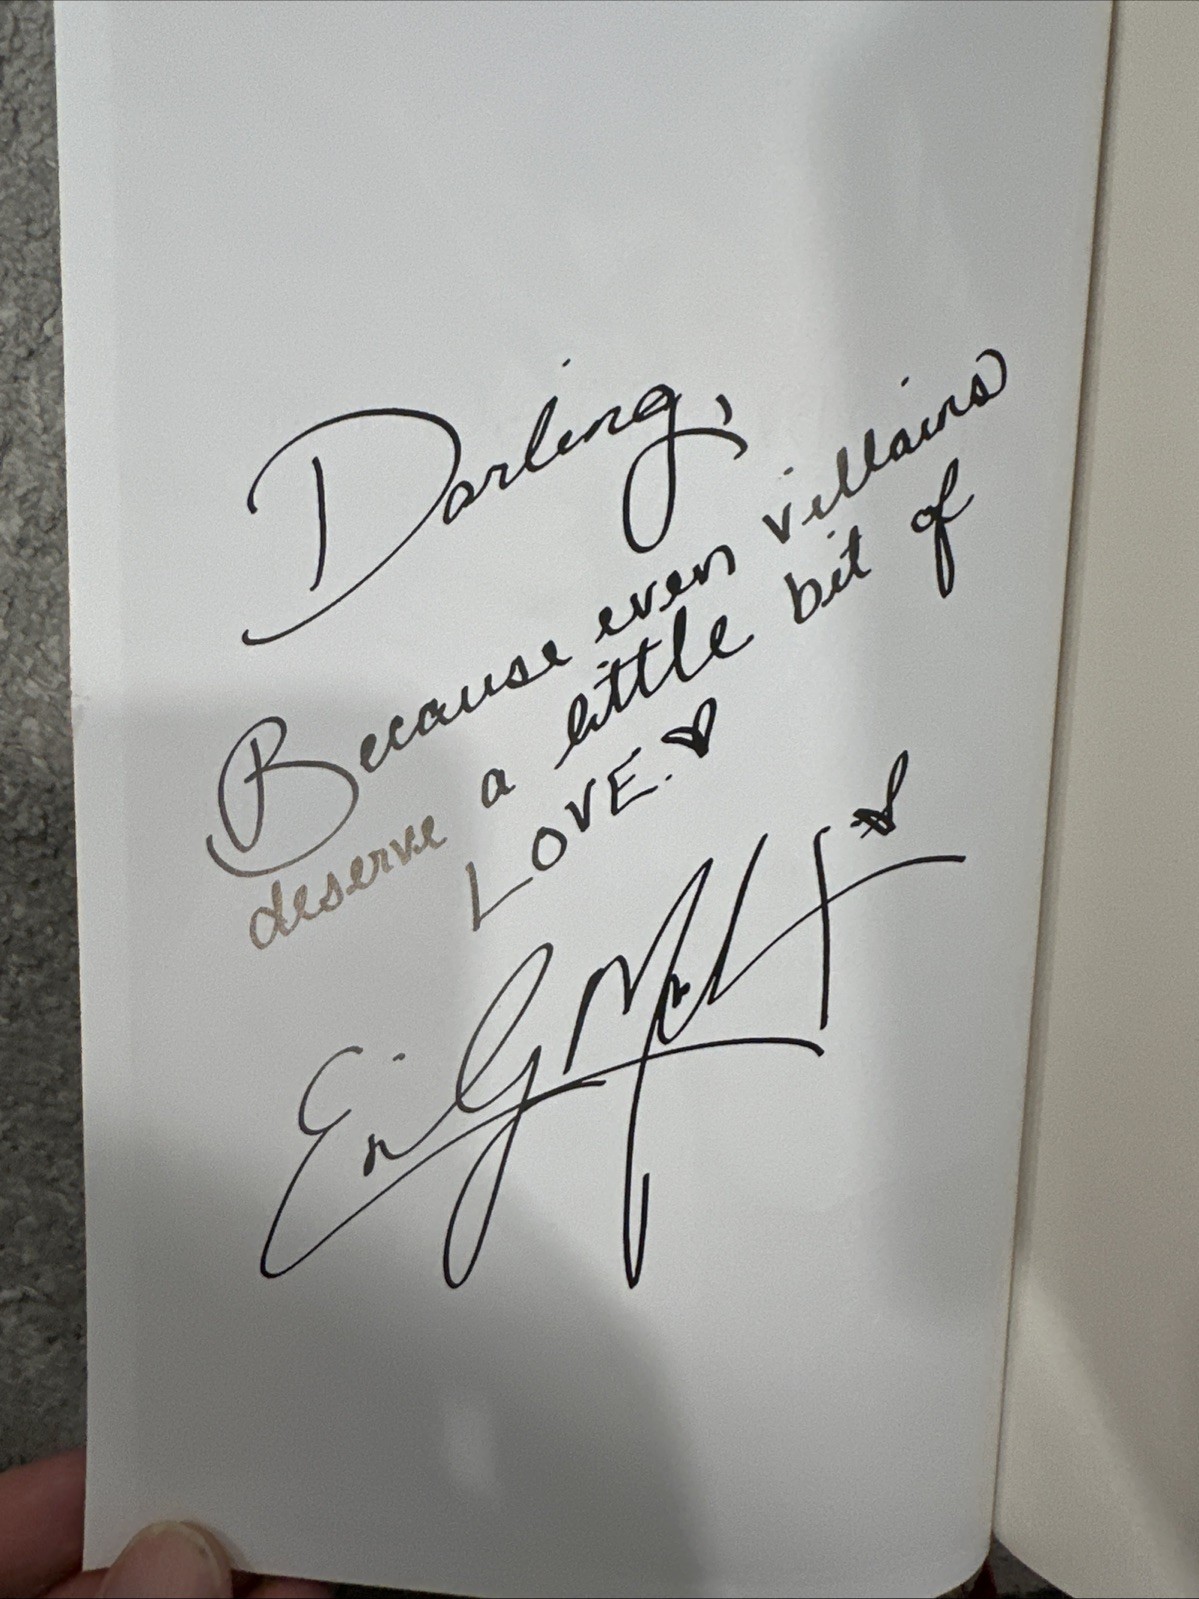 Darling,
Because even villains
deserve a little bit of
LOVE.
Emily